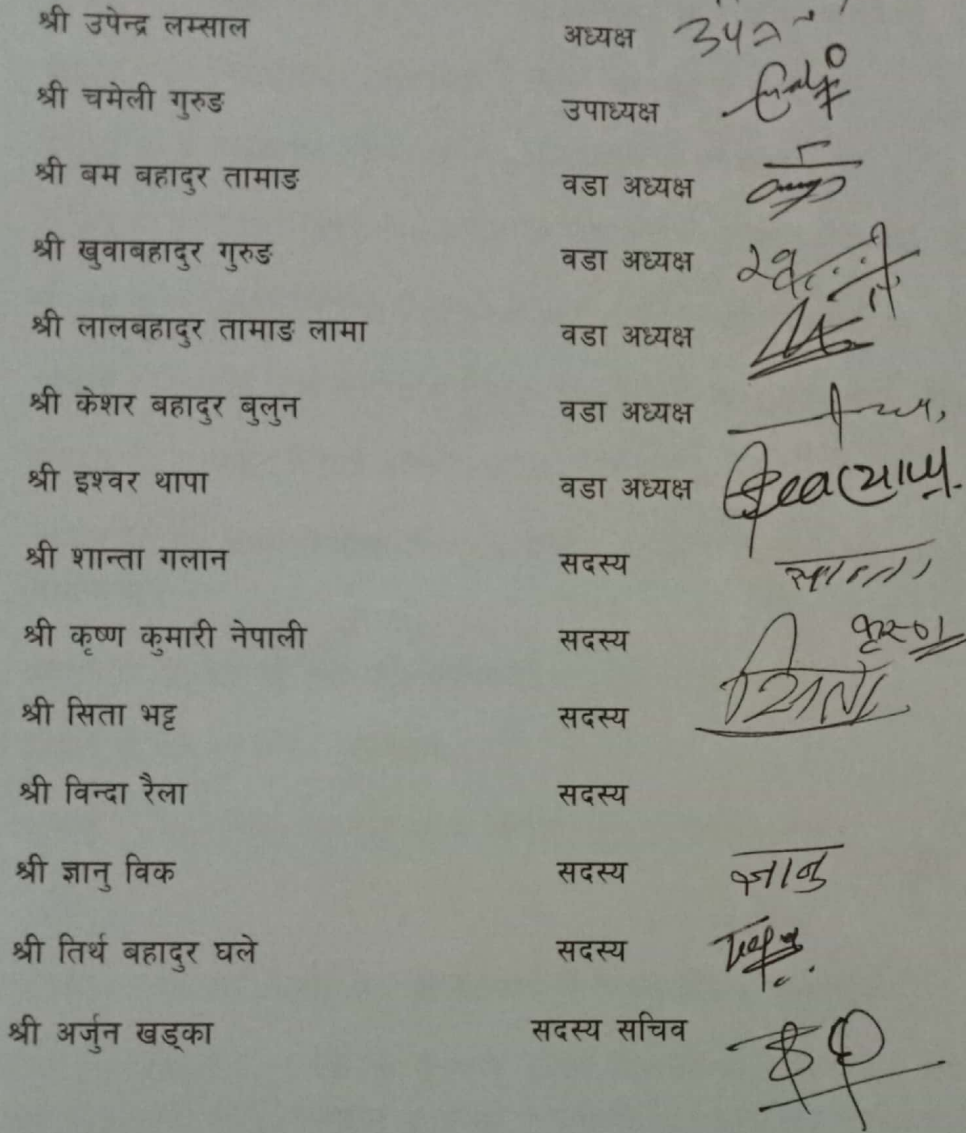 श्री उपेन्द्र लम्साल अध्यक्ष
श्री चमेली गुरुङ उपाध्यक्ष
श्री बम बहादुर तामाङ वडा अध्यक्ष
श्री खुवाबहादुर गुरुङ वडा अध्यक्ष
श्री लालबहादुर तामाङ लामा वडा अध्यक्ष
श्री केशर बहादुर बुलुन वडा अध्यक्ष
श्री इश्वर थापा वडा अध्यक्ष
श्री शान्ता गलान सदस्य
श्री कृष्ण कुमारी नेपाली सदस्य
श्री सिता भट्ट सदस्य
श्री विन्दा रैला सदस्य
श्री ज्ञानु विक सदस्य ज्ञानु
श्री तिर्थ बहादुर घले सदस्य
श्री अर्जुन खड्का सदस्य सचिव